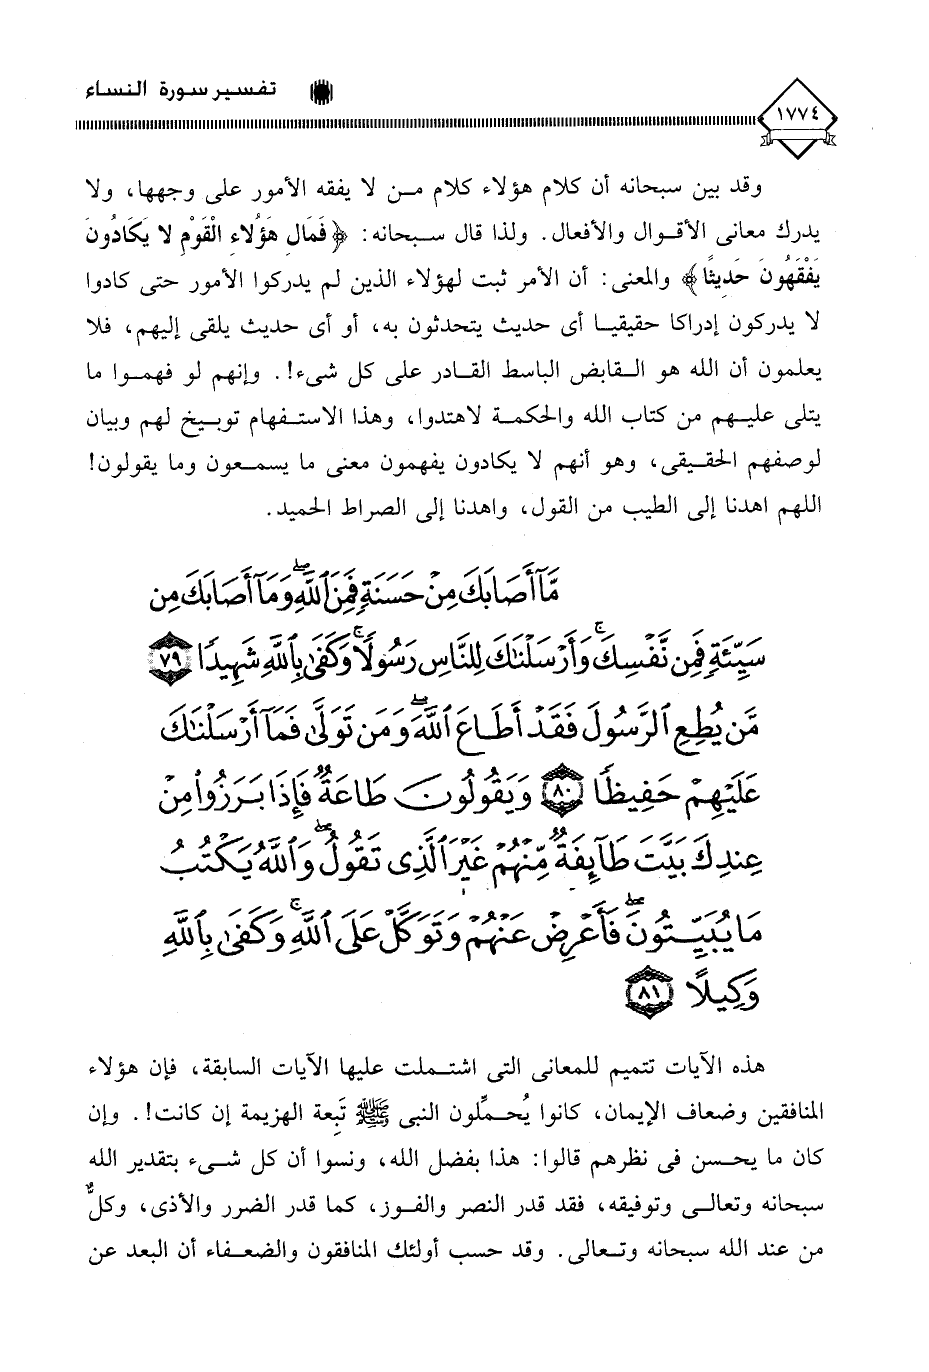 ١٧٧٤
تفسير سورة النساء
وقد بين سبحانه أن كلام هؤلاء كلام مـن لا يفقه الأمور على وجهها، ولا
يدرك معانى الأقـوال والأفعال. ولذا قال سـبحانه: ﴿فَمَالِ هَؤُلاءِ الْقَوْمِ لا يَكَادُونَ
يَفْقَهُونَ حَدِيثًا﴾ والمعنى: أن الأمر ثبت لهؤلاء الذين لم يدركوا الأمور حتى كادوا
لا يدركون إدراكا حقيقيـا أى حديث يتحدثون به، أو أى حديث يلقى إليهم، فلا
يعلمون أن الله هو الـقابض الباسط القـادر على كل شىء!. وإنهم لو فهمـوا ما
يتلى عليـهم من كتاب الله والحكمـة لاهتدوا، وهذا الاستـفهام توبـيخ لهم وبيان
لوصفهم الحقـيقى، وهو أنهم لا يكادون يفهمون معنى ما يسمـعون وما يقولون!
اللهم اهدنا إلى الطيب من القول، واهدنا إلى الصراط الحميد.
مَّآ أَصَابَكَ مِنْ حَسَنَةٍ فَمِنَ ٱللَّهِۖ وَمَآ أَصَابَكَ مِن
سَيِّئَةٍ فَمِن نَّفْسِكَۚ وَأَرْسَلْنَٰكَ لِلنَّاسِ رَسُولًاۚ وَكَفَىٰ بِٱللَّهِ شَهِيدًا ٧٩
مَّن يُطِعِ ٱلرَّسُولَ فَقَدْ أَطَاعَ ٱللَّهَۖ وَمَن تَوَلَّىٰ فَمَآ أَرْسَلْنَٰكَ
عَلَيْهِمْ حَفِيظًا ٨٠ وَيَقُولُونَ طَاعَةٌ فَإِذَا بَرَزُوا۟ مِنْ
عِندِكَ بَيَّتَ طَآئِفَةٌ مِّنْهُمْ غَيْرَ ٱلَّذِى تَقُولُۖ وَٱللَّهُ يَكْتُبُ
مَا يُبَيِّتُونَۖ فَأَعْرِضْ عَنْهُمْ وَتَوَكَّلْ عَلَى ٱللَّهِۚ وَكَفَىٰ بِٱللَّهِ
وَكِيلًا ٨١
هذه الآيات تتميم للمعانى التى اشتـملت عليها الآيات السابقة، فإن هؤلاء
المنافقين وضعاف الإيمان، كانوا يُحمـِّلون النبى ﷺ تَبِعة الهزيمة إن كانت!. وإن
كان ما يحـسن فى نظرهم قالوا: هذا بفضل الله، ونسوا أن كل شـىء بتقدير الله
سبحانه وتعالـى وتوفيقه، فقد قدر النصر والفـوز، كما قدر الضرر والأذى، وكلٌّ
من عند الله سبحانه وتـعالى. وقد حسب أولئك المنافقون والضعـفاء أن البعد عن